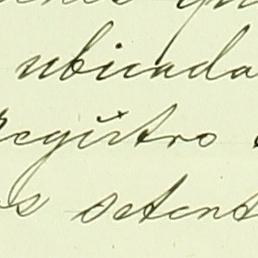 ubicada
Registro
setent